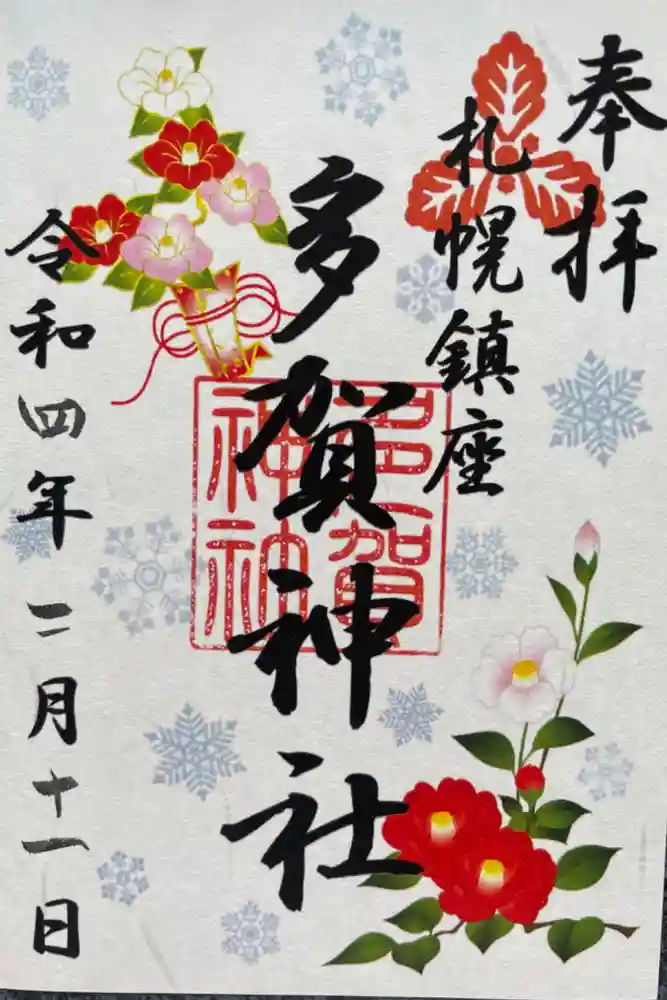 奉拝
札幌鎮座
多賀神社
多賀
神社
令和四年二月十一日